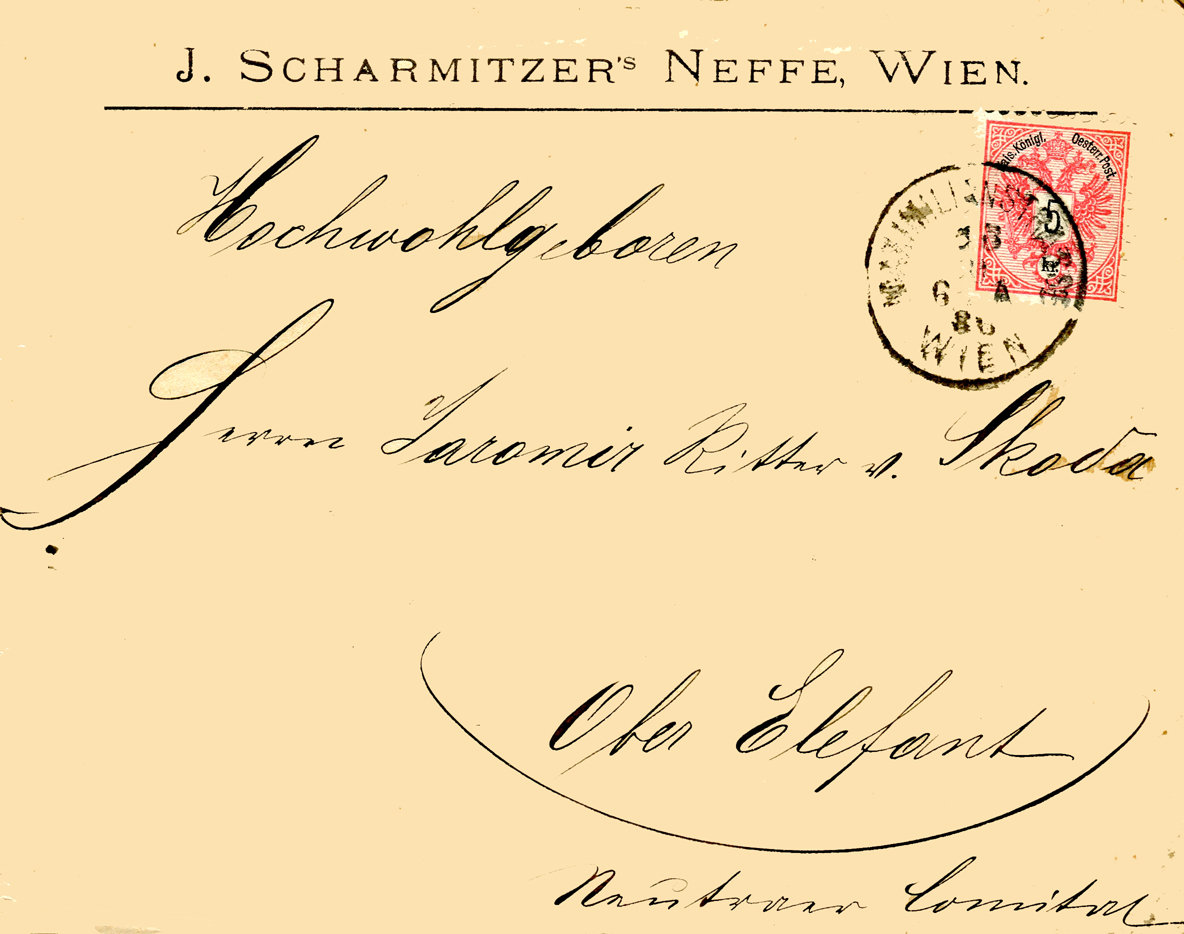 J. SCHARMITZER'S NEFFE, WIEN.
Kais. Königl. Oesterr. Post.
5
kr.
MAXIMILIANSTRASSE
6 A
86
WIEN
Hochwohlgeboren
Herrn Jaromir Ritter v. Skoda
Ober Elefant
Neutraer Comitat